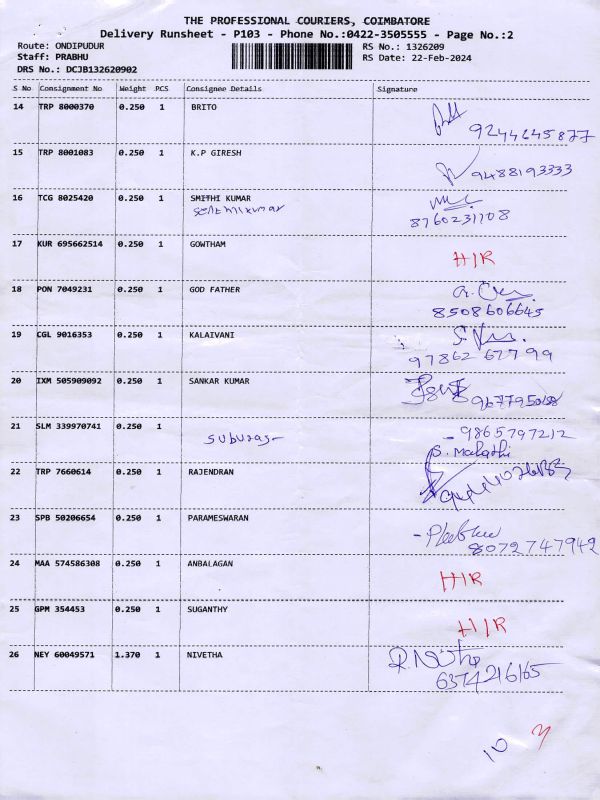 THE PROFESSIONAL COURIERS, COIMBATORE
Delivery Runsheet - P103 - Phone No.:0422-3505555 - Page No.:2
Route: ONDIPUDUR RS No.: 1326209
Staff: PRABHU RS Date: 22-Feb-2024
DRS No.: DCJB132620902
S No Consignment No Weight PCS Consignee Details Signature
14 TRP 8000370 0.250 1 BRITO
9244645877
15 TRP 8001083 0.250 1 K.P GIRESH
9488193333
16 TCG 8025420 0.250 1 SMITHI KUMAR
8760231108
17 KUR 695662514 0.250 1 GOWTHAM H/R
18 PON 7049231 0.250 1 GOD FATHER
8508606645
19 CGL 9016353 0.250 1 KALAIVANI
97862 67799
20 IXM 505909092 0.250 1 SANKAR KUMAR
21 SLM 339970741 0.250 1
- 9865797212
S. Malathi
22 TRP 7660614 0.250 1 RAJENDRAN
23 SPB 50206654 0.250 1 PARAMESWARAN
8072747942
24 MAA 574586308 0.250 1 ANBALAGAN H/R
25 GPM 354453 0.250 1 SUGANTHY H/R
26 NEY 60049571 1.370 1 NIVETHA
6374216165
10 3